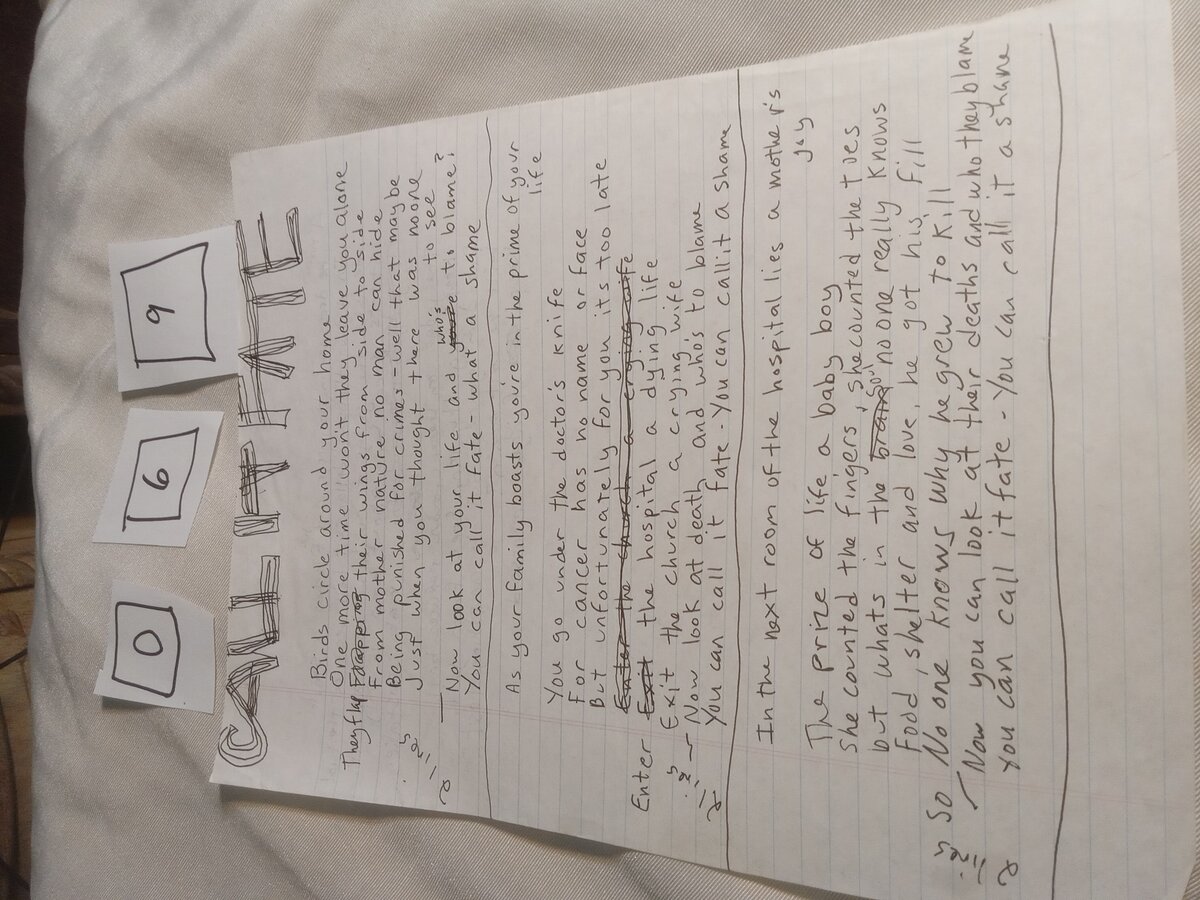 0 6 9
CALL IT FATE
Birds circle around your home
One more time won't they leave you alone
They flap their wings from side to side
From mother nature no man can hide
Being punished for crimes - well that maybe
Just when you thought there was noone
to see
who's
Now look at your life and to blame?
You can call it fate - what a shame
As your family boasts you're in the prime of your
life
You go under the doctor's knife
For cancer has no name or face
But unfortunately for you its too late
Enter the church a crying wife
Enter Exit the hospital a dying life
Exit the church a crying wife
Now look at death and who's to blame
You can call it fate - You can call it a shame
In the next room of the hospital lies a mother's
joy
The prize of life a baby boy
She counted the fingers, she counted the toes
but whats in the brain soul no one really knows
Food, shelter and love, he got his fill
So No one knows why he grew to kill
Now you can look at their deaths and who they blame
You can call it fate - You can call it a shame